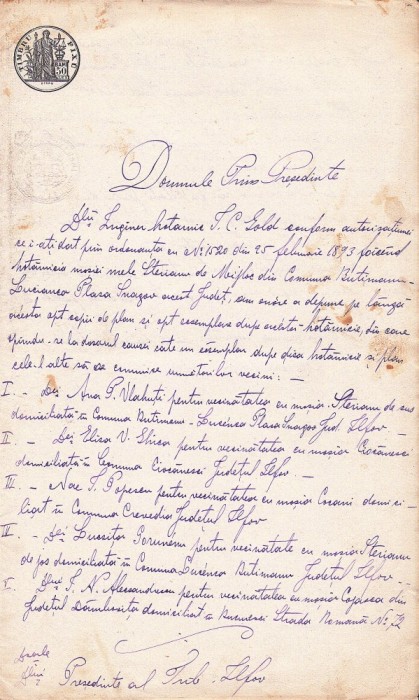 TIMBRU FIXU
50
Domnule Prim Președinte
Dlŭ Inginer hotarnic T. C. Gold conform autorisațiunei
ce i-ați dat prin ordonanța cu Nº 1520 din 25 februarie 1893 făcênd
hotărnicia moșiei mele Sterianu de Mijloc din Comuna Butimanu-
Lucianca Plasa Snagov acest Județ, am onóre a depune pe lângă
acésta opt copii de plan și opt exemplare dupe acéstă hotărnicie, din care
la dosarul causei câte un exemplar dupe disa hotărnicie și plan
cele-l-alte să se comunice următorilor vecini: —
I. — Dei Ana P. Vlahuți pentru vecinătatea cu moșia Sterianu de sus
domiciliată în Comuna Butimanu-Lucénca Plasa Snagov Jud. Ilfov —
II. — Dei Elisa V. pentru vecinătatea cu moșia Ciocănesci
domiciliată în Comuna Ciocănesci Județul Ilfov. —
III. — Nae T. Popescu pentru vecinătatea cu moșia Cocani domici-
liat în Comuna Crevedia Județul Ilfov
IV. — Dei pentru vecinătate cu moșia Sterianu
de jos domiciliată în Comuna Lucénca Butimanu Județul Ilfov —
V. Dlui T. N. Alexandrescu pentru vecinătatea cu moșia Cojasca din
Județul Dâmbovița domiciliat în Bucuresci Strada Romană No. 72
Președinte al Trib. Ilfov